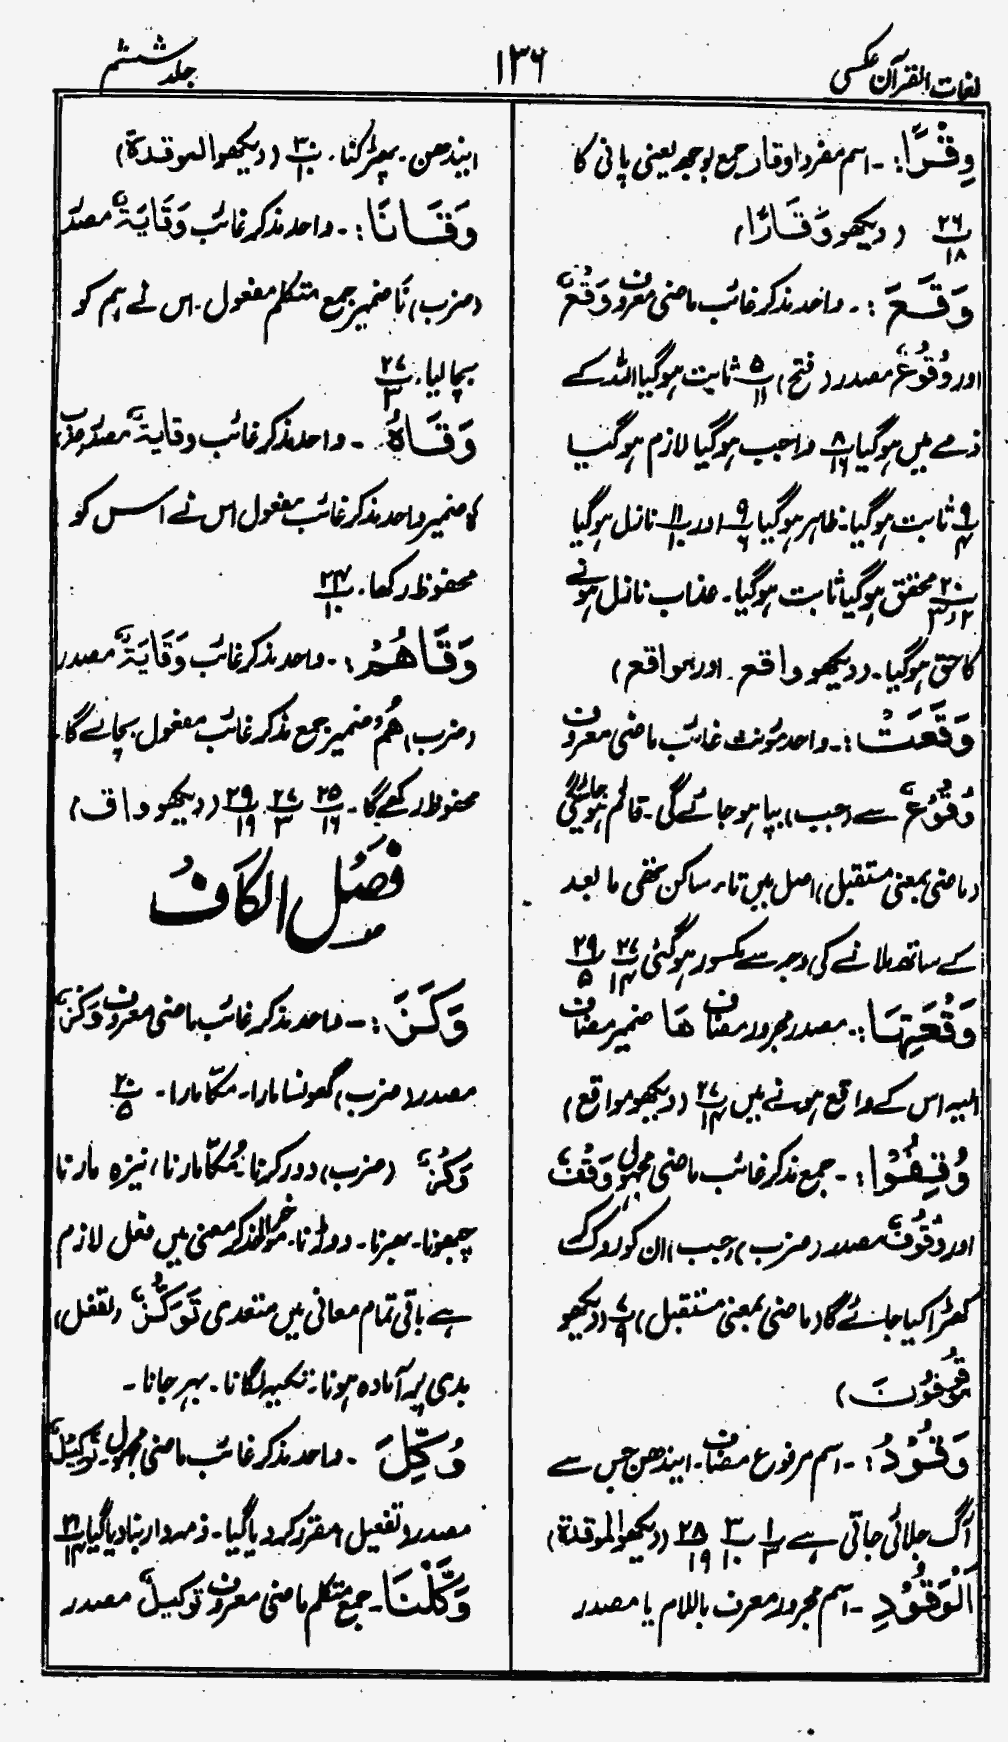 لغات القرآن عکسی
۱۳۶
جلد ششم
وِقْرًا:۔ اسم مفرد اوقار جمع بوجھ یعنی پانی کا
۲۶/۱۸ (دیکھو وَقَارًا)
وَقَعَ:۔ واحد مذکر غائب ماضی معروف وَقْعٌ
اور وُقُوْعٌ مصدر (فتح) ۵/۱۱ ثابت ہوگیا اللہ کے
ذمے میں ہوگیا ۸/۱۶ واجب ہوگیا لازم ہوگیا
۹/۴ ثابت ہوگیا۔ ظاہر ہوگیا ۹/۶ اور ۱۱/۱ نازل ہوگیا
۲۰/۲،۳ محقق ہوگیا ثابت ہوگیا۔ عذاب نازل ہونے
کا حق ہوگیا۔ (دیکھو واقع۔ اور مواقع)
وَقَعَتْ:۔ واحد مؤنث غائب ماضی معروف
وُقُوْعٌ سے (حسب) بپا ہو جائے گی۔ قائم ہو جائے گی
(ماضی بمعنی مستقبل) اصل میں تاء ساکن تھی ما بعد
کے ساتھ ملانے کی وجہ سے مکسور ہوگئی ۲۷/۱۴ ۲۹/۵
وَقْعَتِهَا:۔ مصدر مجرور مضاف ھَا ضمیر مضاف
الیہ اس کے واقع ہونے میں ۲۷/۱۴ (دیکھو مواقع)
وُقِفُوْا:۔ جمع مذکر غائب ماضی مجہول وَقْفٌ
اور وُقُوْفٌ مصدر (ضرب) (حسب) ان کو روک کر
کھڑا کیا جائے گا (ماضی بمعنی مستقبل) ۷/۹ (دیکھو
مَوْقُوْفُوْنَ)
وَقُوْدُ:۔ اسم مرفوع مضاف۔ ایندھن جس سے
آگ جلائی جاتی ہے ۱/۳ ۳/۱۰ ۲۸/۱۹ (دیکھو الموقدة)
اَلْوَقُوْدِ۔ اسم مجرور معرف باللام یا مصدر
ایندھن۔ بھڑکنا۔ ۳۰/۱۰ (دیکھو الموقدة)
وَقَانَا:۔ واحد مذکر غائب وَقَایَةٌ مصدر
(ضرب) نَا ضمیر جمع متکلم مفعول۔ اس نے ہم کو
بچالیا۔ ۲۷/۳
وَقَاهُ۔ واحد مذکر غائب وقایةٌ مصدر ضرب
ہٗ ضمیر واحد مذکر غائب مفعول اس نے اس کو
محفوظ رکھا۔ ۲۴/۱۰
وَقَاهُمْ:۔ واحد مذکر غائب وَقَایَةٌ مصدر
(ضرب) هُمْ ضمیر جمع مذکر غائب مفعول بچالے گا۔
محفوظ رکھے گا۔ ۲۵/۱۶ ۲۷/۳ ۲۹/۱۹ (دیکھو واق)
فَصْلُ الْكَافْ
وَكَزَ:۔ واحد مذکر غائب ماضی معروف وَكْزٌ
مصدر (ضرب) گھونسا مارا۔ مکّا مارا۔ ۲۰/۵
وَكْزٌ (ضرب) دور کرنا۔ مُکّا مارنا، نیزہ مارنا
چبھونا۔ بھرنا۔ دوڑنا۔ مؤخر الذکر معنی میں فعل لازم
ہے باقی تمام معانی میں متعدی تَوَكُّزٌ (تفعل)
بدی پر آمادہ ہونا۔ تکیہ لگانا۔ بھر جانا۔
وُكِّلَ۔ واحد مذکر غائب ماضی مجہول تَوكیلٌ
مصدر (تفعیل) مقرر کر دیا گیا۔ ذمہ دار بنا دیا گیا ۲۱/۱۴
وَكَّلْنَا۔ جمع متکلم ماضی معروف توکیلٌ مصدر